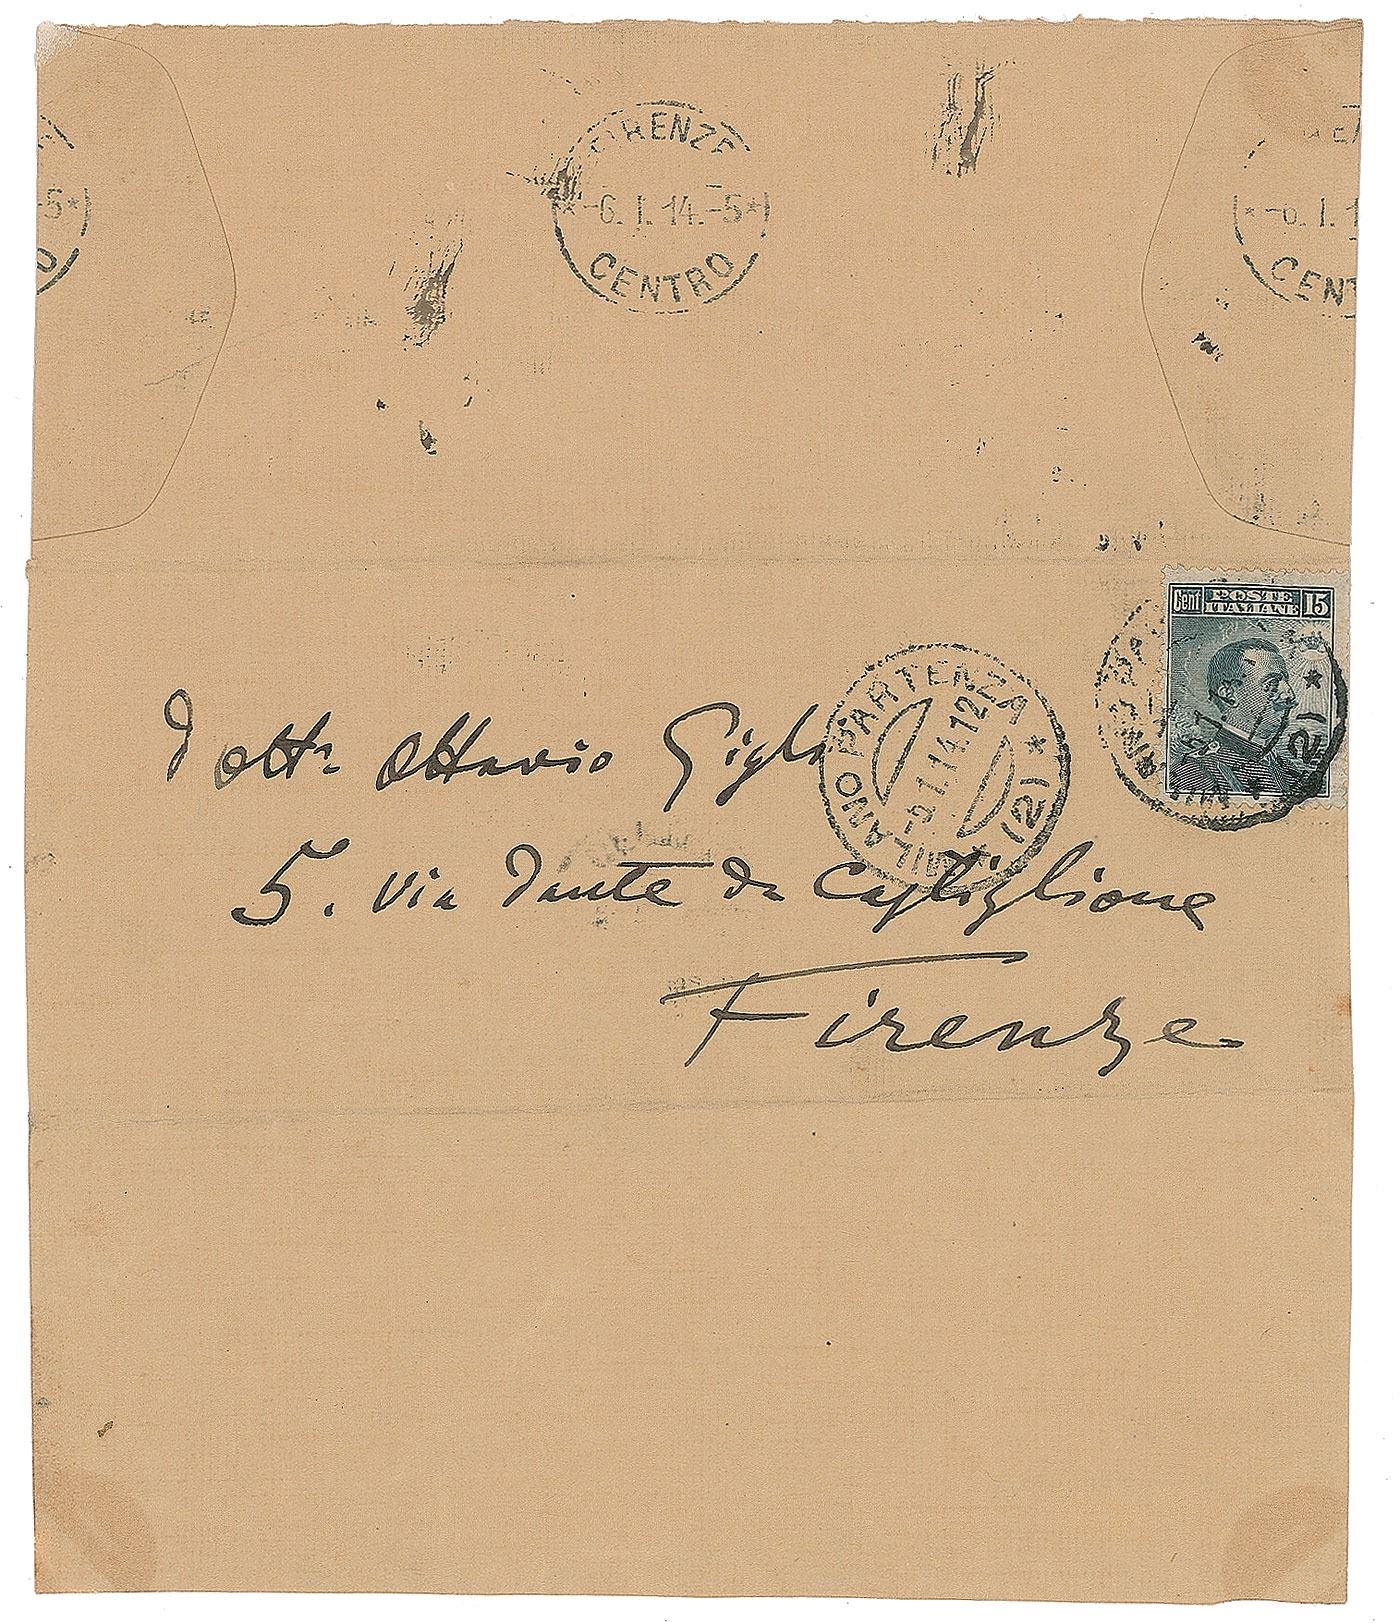 FIRENZE
-6.I.14.-5
CENTRO
-5
-6.I.1
CENT
Cent POSTE ITALIANE 15
MILANO PARTENZA
-5.1.14.12
(12)
Dottr Ottavio Gigli
5. via Dante da Castiglione
Firenze